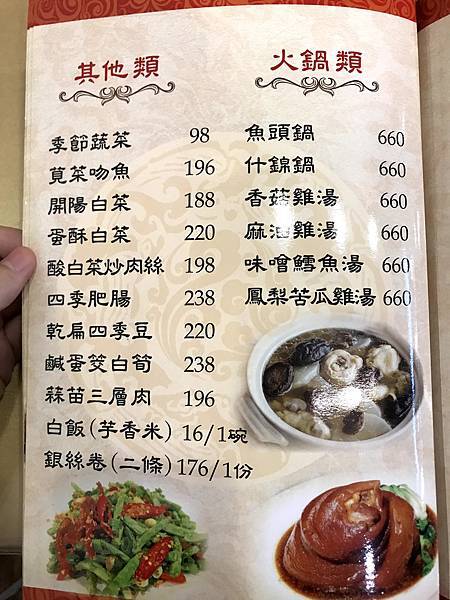 其他類
季節蔬菜 98
莧菜吻魚 196
開陽白菜 188
蛋酥白菜 220
酸白菜炒肉絲 198
四季肥腸 238
乾扁四季豆 220
鹹蛋筊白筍 238
蒜苗三層肉 196
白飯(芋香米) 16/1碗
銀絲卷(二條) 176/1份
火鍋類
魚頭鍋 660
什錦鍋 660
香菇雞湯 660
麻油雞湯 660
味噌鱈魚湯 660
鳳梨苦瓜雞湯 660